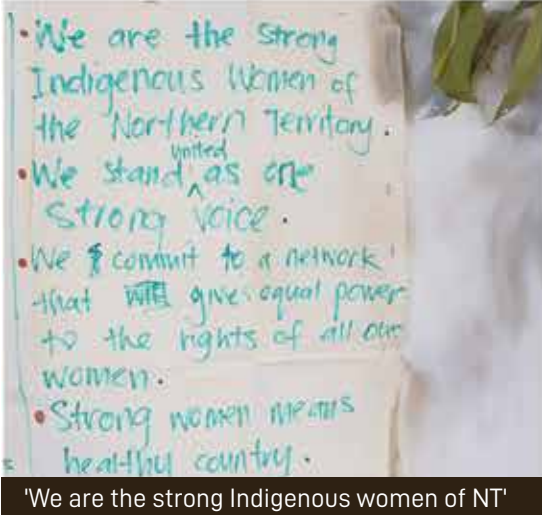 • We are the strong
Indigenous Women of
the Northern Territory.
united
• We stand ^ as one
strong voice.
• We commit to a network
that will give equal power
to the rights of all our
women.
• Strong women means
healthy country.
'We are the strong Indigenous women of NT'